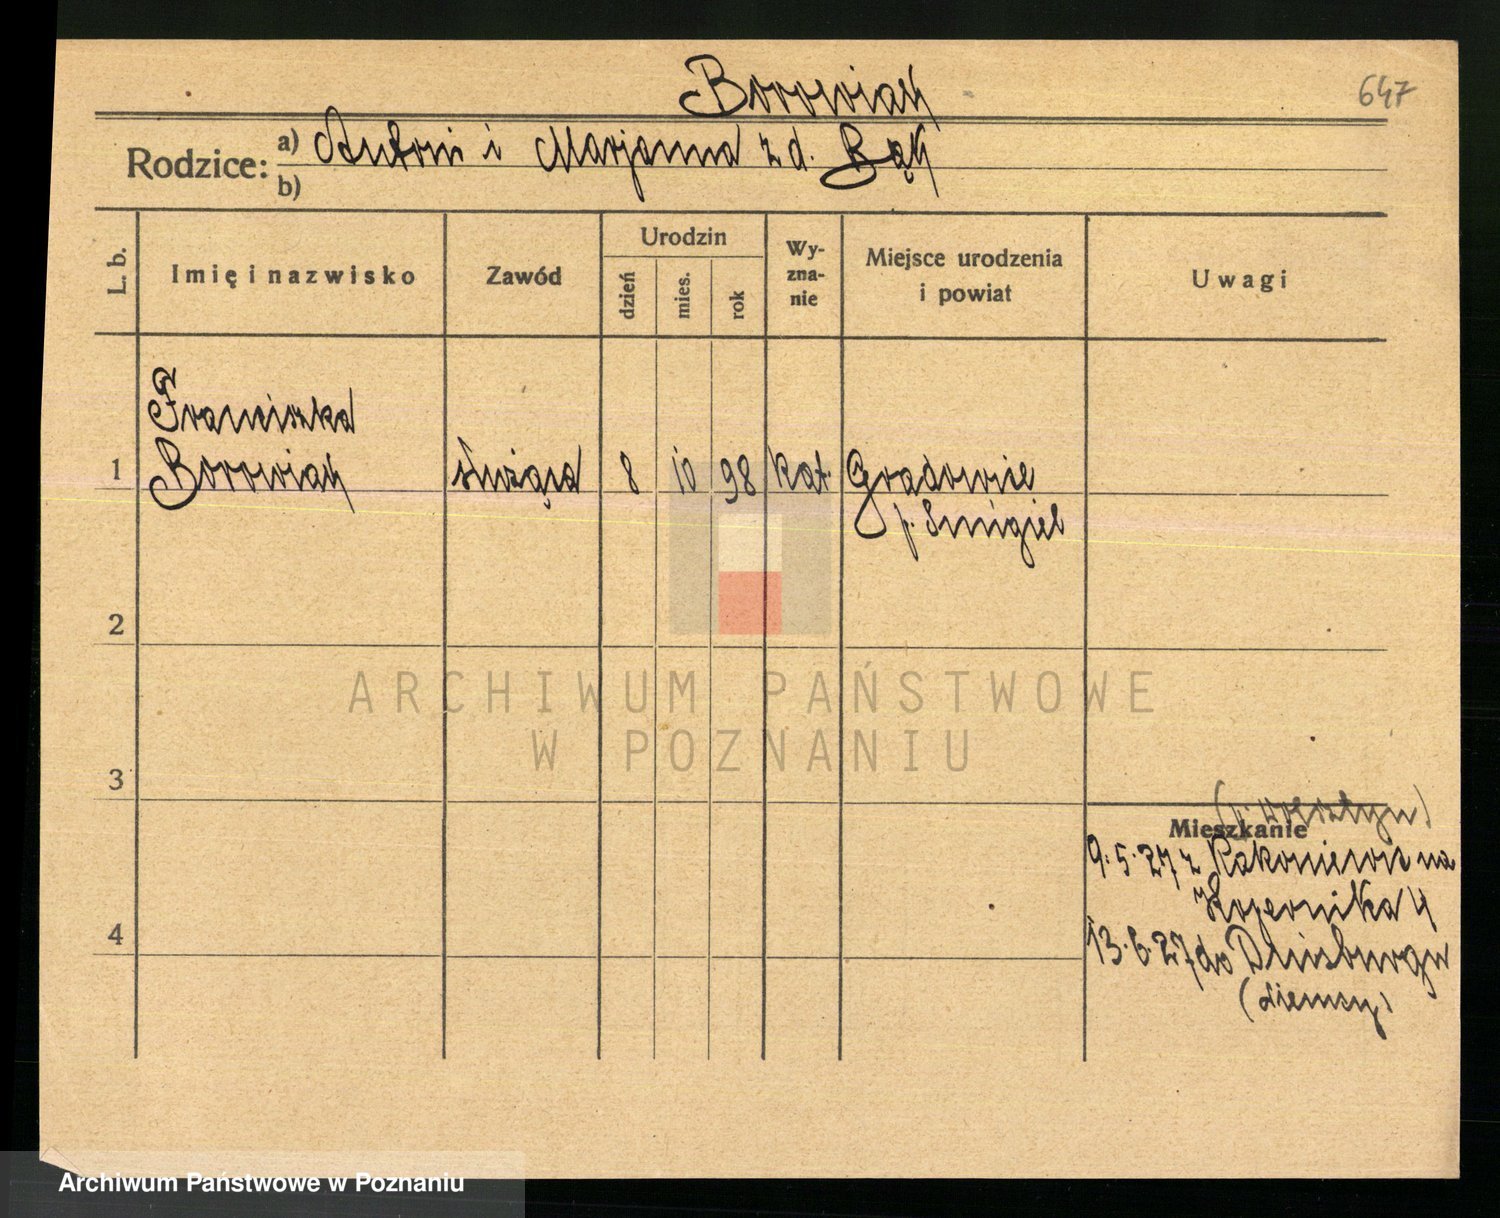 Borowiak
647
Rodzice: a) Antoni i Marjanna z d. Bąk
b)
L. b.
Imię i nazwisko
Zawód
Urodzin
dzień
mies.
rok
Wy-
zna-
nie
Miejsce urodzenia
i powiat
Uwagi
Franciszka
1 Borowiak służąca 8 10 98 kat. Gradowice
p. Smigiel
2
ARCHIWUM PAŃSTWOWE
W POZNANIU
3
(p. Wolsztyn)
Mieszkanie
9.5.27 z Rakoniewic na
Kopernika 4
4
13.6.27 do Duisburgu
(Niemcy)
Archiwum Państwowe w Poznaniu